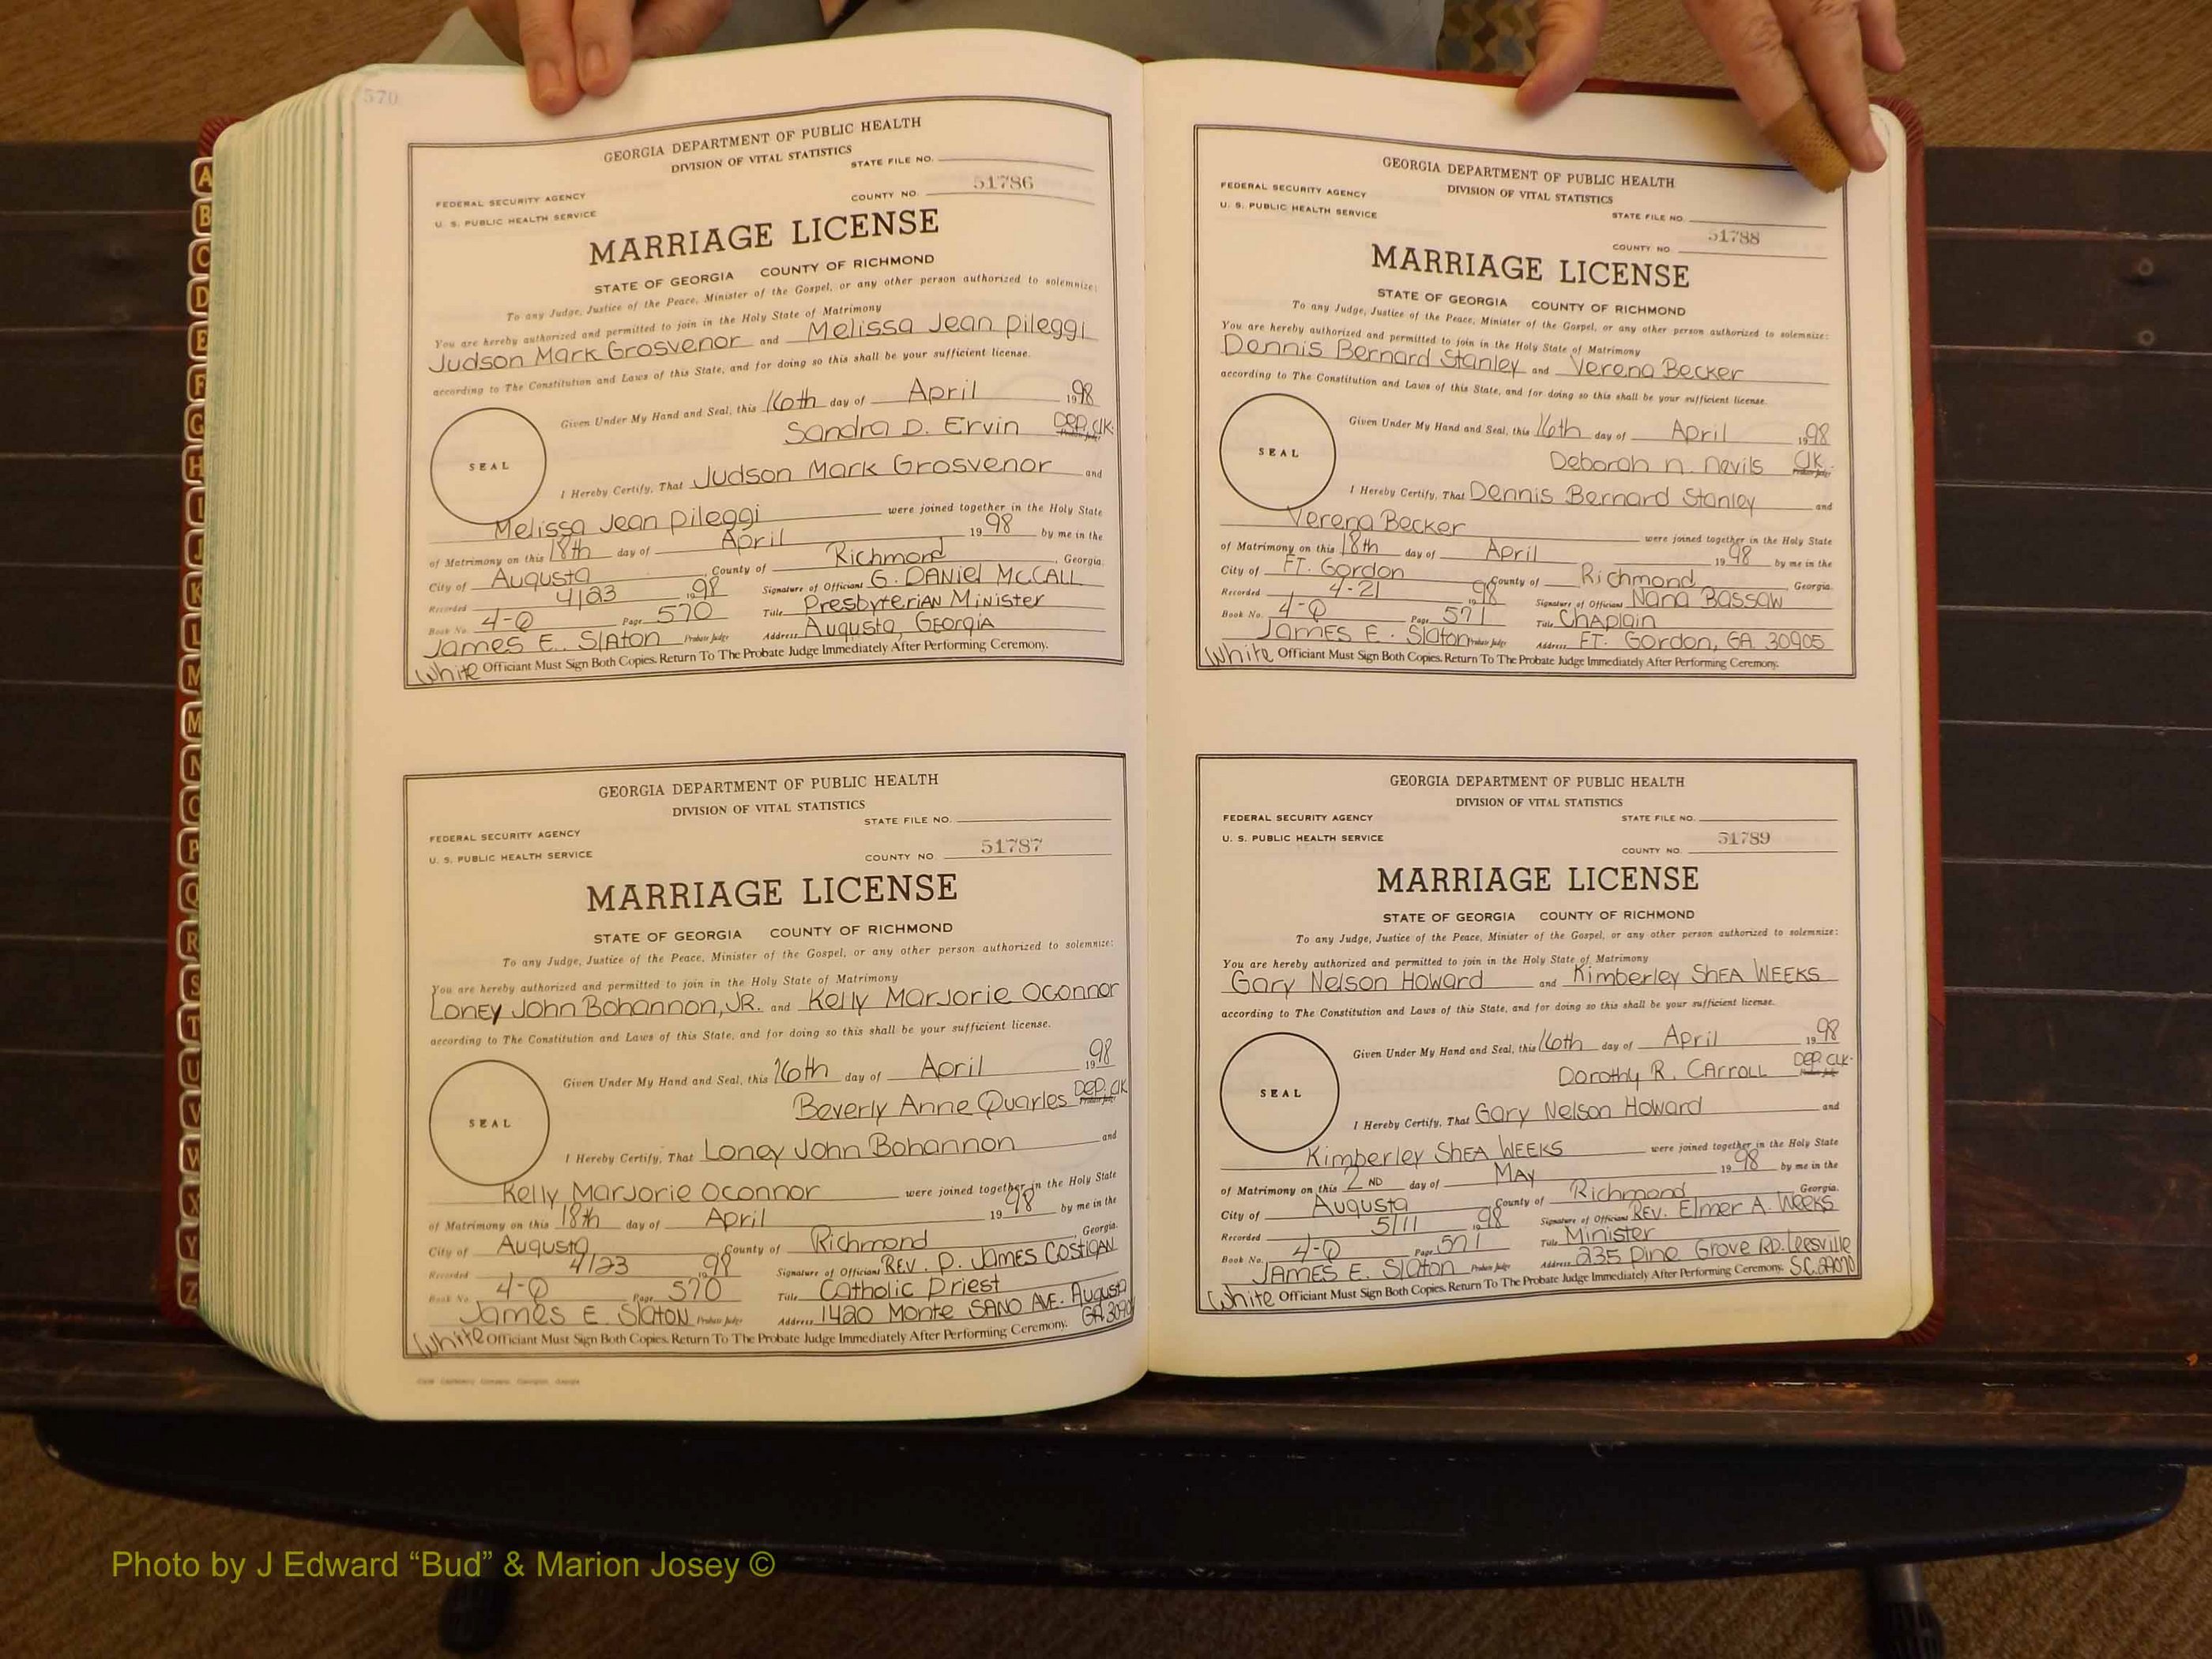 570
GEORGIA DEPARTMENT OF PUBLIC HEALTH
DIVISION OF VITAL STATISTICS
STATE FILE NO.
FEDERAL SECURITY AGENCY
COUNTY NO. 51786
U. S. PUBLIC HEALTH SERVICE
MARRIAGE LICENSE
STATE OF GEORGIA COUNTY OF RICHMOND
To any Judge, Justice of the Peace, Minister of the Gospel, or any other person authorized to solemnize:
You are hereby authorized and permitted to join in the Holy State of Matrimony
Judson Mark Grosvenor and Melissa Jean Pileggi
according to The Constitution and Laws of this State, and for doing so this shall be your sufficient license.
Given Under My Hand and Seal, this 16th day of April 1998
Sandra D. Ervin DEP. CLK.
Probate Judge
SEAL
I Hereby Certify, That Judson Mark Grosvenor and
Melissa Jean Pileggi were joined together in the Holy State
of Matrimony on this 18th day of April 1998 by me in the
City of Augusta, County of Richmond, Georgia.
Recorded 4/23 1998 Signature of Officiant G. DANIEL McCALL
Book No. 4-Q Page 570 Title Presbyterian Minister
James E. Slaton Probate Judge Address Augusta, Georgia
White Officiant Must Sign Both Copies. Return To The Probate Judge Immediately After Performing Ceremony.
GEORGIA DEPARTMENT OF PUBLIC HEALTH
DIVISION OF VITAL STATISTICS
STATE FILE NO.
FEDERAL SECURITY AGENCY
U. S. PUBLIC HEALTH SERVICE
COUNTY NO. 51787
MARRIAGE LICENSE
STATE OF GEORGIA COUNTY OF RICHMOND
To any Judge, Justice of the Peace, Minister of the Gospel, or any other person authorized to solemnize:
You are hereby authorized and permitted to join in the Holy State of Matrimony
Loney John Bohannon, JR. and Kelly Marjorie Oconnor
according to The Constitution and Laws of this State, and for doing so this shall be your sufficient license.
Given Under My Hand and Seal, this 16th day of April 1998
Beverly Anne Quarles DEP. CLK
Probate Judge
SEAL
I Hereby Certify, That Loney John Bohannon and
Kelly Marjorie Oconnor were joined together in the Holy State
of Matrimony on this 18th day of April 1998 by me in the
City of Augusta, County of Richmond, Georgia.
Recorded 4/23 1998 Signature of Officiant REV. P. JAMES COSTIGAN
Book No. 4-Q Page 570 Title Catholic Priest
James E. Slaton Probate Judge Address 1420 Monte SANO AVE. Augusta
White Officiant Must Sign Both Copies. Return To The Probate Judge Immediately After Performing Ceremony. GA
GEORGIA DEPARTMENT OF PUBLIC HEALTH
DIVISION OF VITAL STATISTICS
FEDERAL SECURITY AGENCY
U. S. PUBLIC HEALTH SERVICE
STATE FILE NO.
COUNTY NO. 51788
MARRIAGE LICENSE
STATE OF GEORGIA COUNTY OF RICHMOND
To any Judge, Justice of the Peace, Minister of the Gospel, or any other person authorized to solemnize:
You are hereby authorized and permitted to join in the Holy State of Matrimony
Dennis Bernard Stanley and Verena Becker
according to The Constitution and Laws of this State, and for doing so this shall be your sufficient license.
Given Under My Hand and Seal, this 16th day of April 1998
Deborah N. Nevils CLK.
Probate Judge
SEAL
I Hereby Certify, That Dennis Bernard Stanley and
Verena Becker were joined together in the Holy State
of Matrimony on this 18th day of April 1998 by me in the
City of FT. Gordon County of Richmond, Georgia.
Recorded 4-21 1998 Signature of Officiant Nana Bassaw
Book No. 4-Q Page 571 Title Chaplain
James E. Slaton Probate Judge Address FT. Gordon, GA. 30905
White Officiant Must Sign Both Copies. Return To The Probate Judge Immediately After Performing Ceremony.
GEORGIA DEPARTMENT OF PUBLIC HEALTH
DIVISION OF VITAL STATISTICS
FEDERAL SECURITY AGENCY STATE FILE NO.
U. S. PUBLIC HEALTH SERVICE
COUNTY NO. 51789
MARRIAGE LICENSE
STATE OF GEORGIA COUNTY OF RICHMOND
To any Judge, Justice of the Peace, Minister of the Gospel, or any other person authorized to solemnize:
You are hereby authorized and permitted to join in the Holy State of Matrimony
Gary Nelson Howard and Kimberley SHEA WEEKS
according to The Constitution and Laws of this State, and for doing so this shall be your sufficient license.
Given Under My Hand and Seal, this 16th day of April 1998
Dorothy R. CARROLL DEP. CLK.
Probate Judge
SEAL
I Hereby Certify, That Gary Nelson Howard and
Kimberley SHEA WEEKS were joined together in the Holy State
of Matrimony on this 2ND day of MAY 1998 by me in the
City of Augusta County of Richmond, Georgia.
Recorded 5/11 1998 Signature of Officiant REV. Elmer A. Weeks
Book No. 4-Q Page 571 Title Minister
JAMES E. Slaton Probate Judge Address 235 Pine Grove RD. Leesville
White Officiant Must Sign Both Copies. Return To The Probate Judge Immediately After Performing Ceremony. S.C. 29070
A
B
C
D
E
F
G
H
I
J
K
L
M
M
N
O
P
Q
R
S
T
U
V
W
X
Y
Z
Photo by J Edward “Bud” & Marion Josey ©